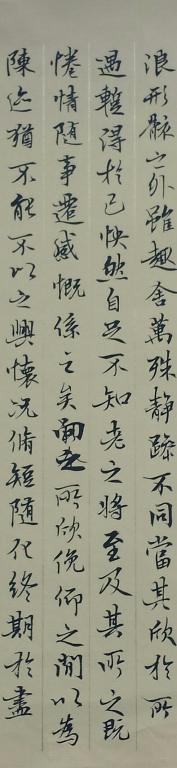 浪形骸之外雖趣舍萬殊静躁不同當其欣於所
遇暫得於己怏然自足不知老之將至及其所之既
惓情隨事遷感慨係之矣向之所欣俛仰之閒以為
陳迹猶不能不以之興懷况脩短隨化終期於盡